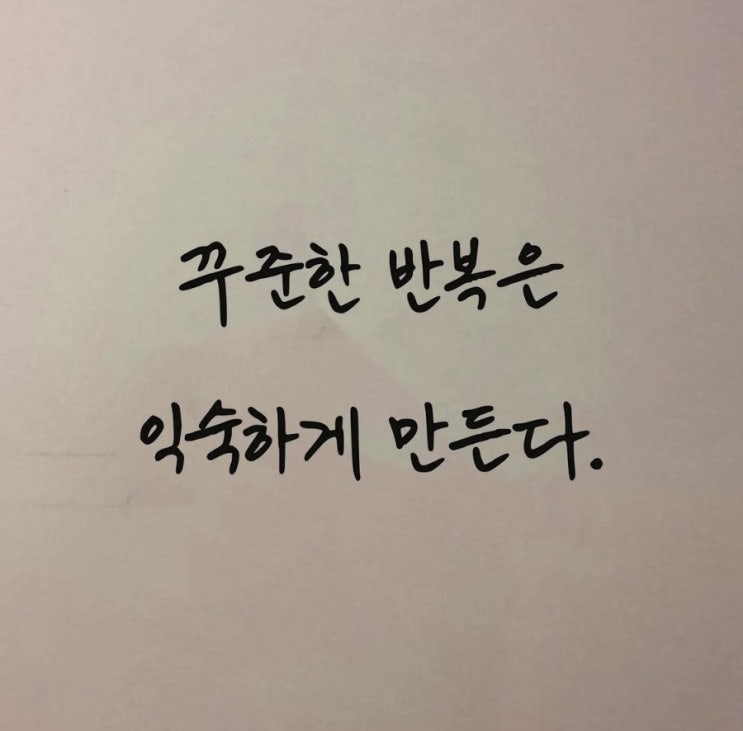 꾸준한 반복은
익숙하게 만든다.